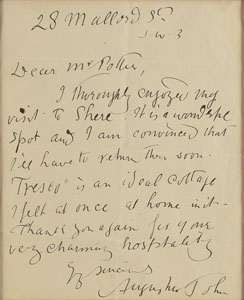 28 Mallord St.
S.W.3
Dear Mr Potter,
I thoroughly enjoyed my
visit to Shere. It is a wonderful
spot and I am convinced that
I'll have to return there soon.
"Tresco" is an ideal cottage
I felt at once at home in it -
Thank you again for your
very charming hospitality
Yrs sincerely
Augustus John